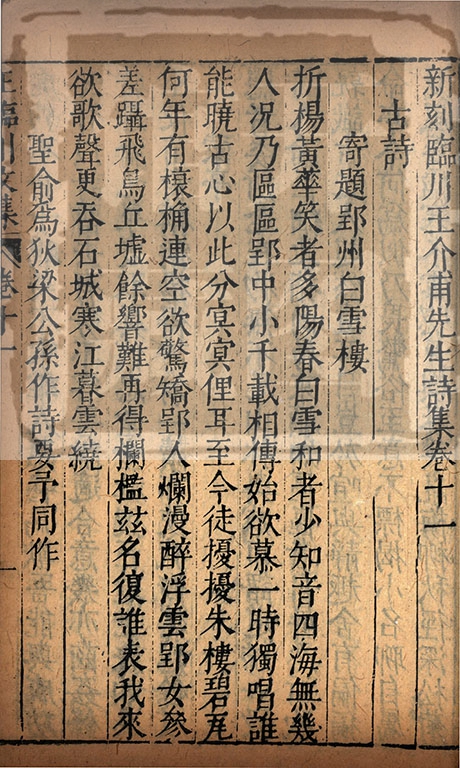 新刻臨川王介甫先生詩集卷十一
古詩
寄題郢州白雪樓
折楊黃華笑者多陽春白雪和者少知音四海無幾
人况乃區區郢中小千載相傳始欲慕一時獨唱誰
能曉古心以此分冥冥俚耳至今徒擾擾朱樓碧瓦
何年有榱桷連空欲驚矯郢人爛漫醉浮雲郢女參
差躡飛鳥丘墟餘響難再得欄檻兹名復誰表我來
欲歌聲更吞石城寒江暮雲繞
聖俞為狄梁公孫作詩要予同作
王臨川文集 卷十一 一